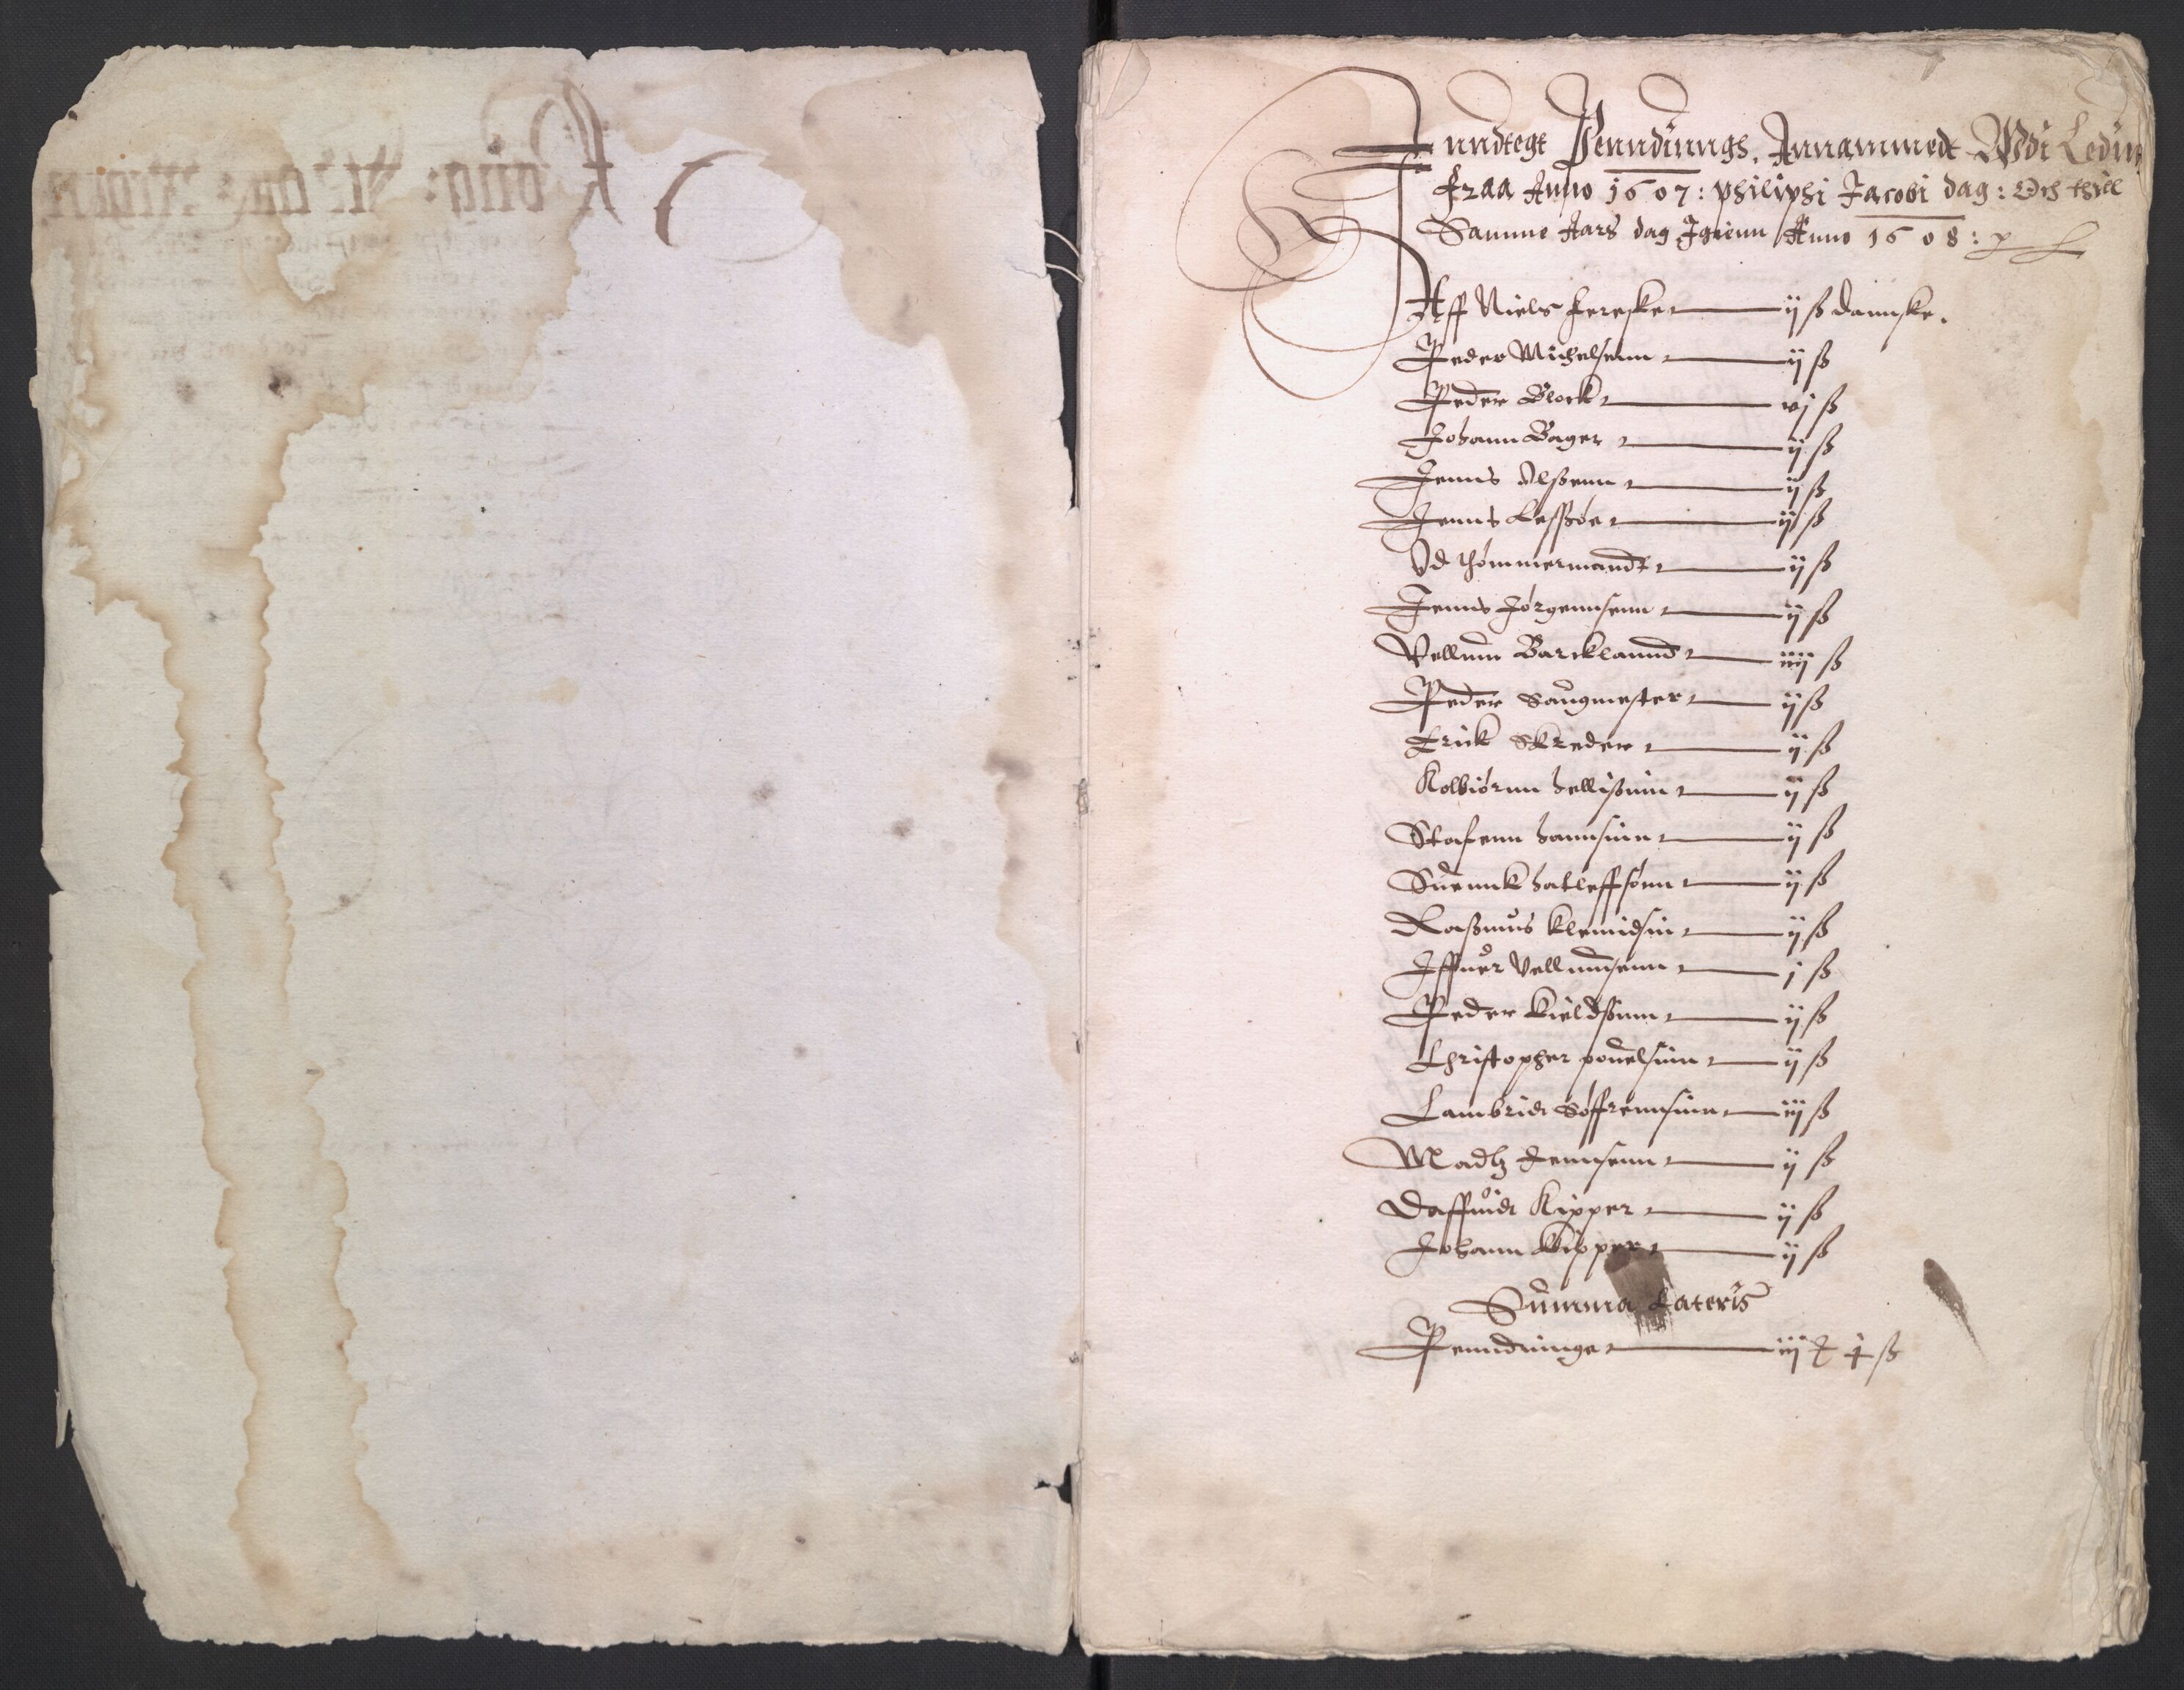 Inndtegt Penndinngs, Annammedt Wdi Ledin
fraa Anno 1607: philiphi Jacobi dag: Och thill
Samme Aars dag Igienn Anno 1608:
Aff Niels Ferske ij ß dannske.
Peder Michelsenn ij ß
Peder Block vj ß
Johann Bager ij ß
Jenns Olßenn ij ß
Jenns Lessøe ij ß
Od thømmermandt ij ß
Jenns Jørgennsenn ij ß
Vellum Barcklannd iiij ß
Peder Saugmester ij ß
Erick Skreder ij ß
Kolbiørnn hellißuin ij ß
Stafenn hannsinn ij ß
Suennk hatleffsønn ij ß
Raßmus Klemidsin ij ß
Iffuer Vellumsenn j ß
Peder Kieldßinn ij ß
Christopher pouelsinn ij ß
Lambridt Søffrennsinn iij ß
Madtz Jennsenn ij ß
Daffuidt Kipper ij ß
Johann Kipper ij ß
Summa Lateris
Penndninge iij j ß